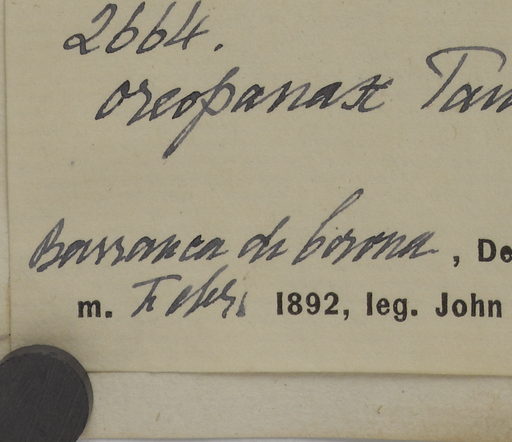 2664.
Oreopanax Tau
Barranca de borona, De
m. Febr. 1892, leg. John